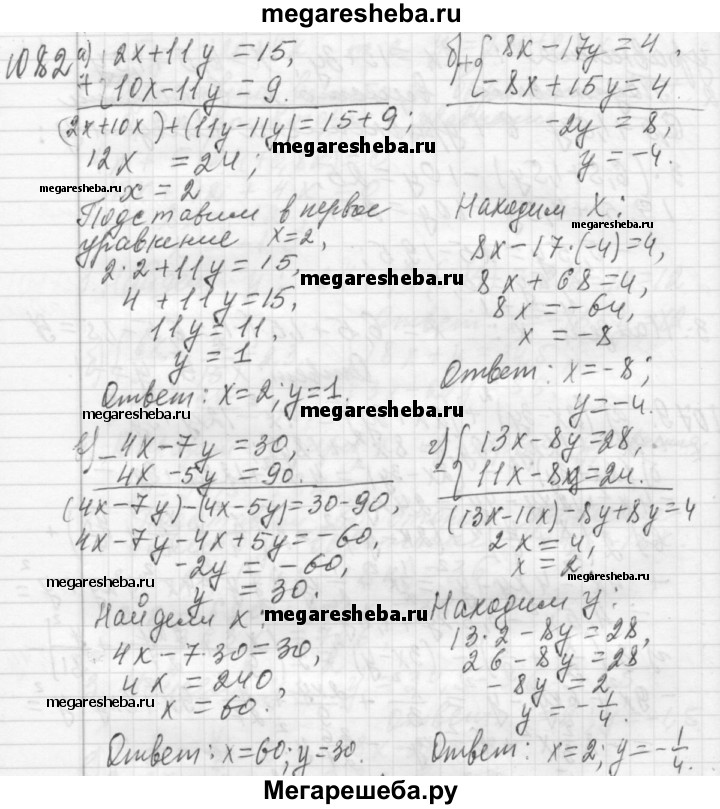 megaresheba.ru
1082 а) 2x+11y = 15,
+ 10x-11y = 9.
(2x+10x)+(11y-11y)=15+9;
12x = 24;
x = 2
Подставим в первое
уравнение x=2,
2·2+11y=15,
4+11y=15,
11y=11,
y = 1
Ответ: x=2; y=1.
б) + 8x-17y=4,
-8x+15y=4.
-2y = 8,
y = -4.
Находим x:
8x-17·(-4)=4,
8x+68=4,
8x = -64,
x = -8
Ответ: x=-8;
y=-4.
в) - 4x-7y = 30,
4x-5y = 90.
(4x-7y)-(4x-5y)=30-90,
4x-7y-4x+5y=-60,
-2y = -60,
y = 30.
Найдем x:
4x-7·30=30,
4x = 240,
x = 60.
Ответ: x=60; y=30.
г) - 13x-8y=28,
11x-8y=24.
(13x-11x)-8y+8y=4
2x=4,
x=2.
Находим y:
13·2-8y=28,
26-8y=28
-8y=2,
y=-1/4.
Ответ: x=2; y=-1/4.
megaresheba.ru
megaresheba.ru
megaresheba.ru
megaresheba.ru
megaresheba.ru
megaresheba.ru
megaresheba.ru
megaresheba.ru
megaresheba.ru
Мегарешеба.ру